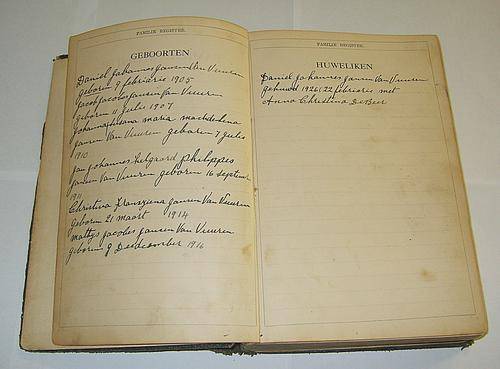 FAMILIE REGISTER.
GEBOORTEN
Daniel Johannes Jansen Van Vuuren
geboren 9 februarie 1905
Jacob Jacobus Jansen Van Vuuren
geboren 11 Julie 1907
Johanna Susana maria magdalena
Jansen Van Vuuren geboren 7 Julie
1910
Jan Johannes Helgaard philippes
Jansen Van Vuuren geboren 16 september
1911
Christina Fransjiena Jansen Van Vuuren
Geboren 21 maart 1914
mattys Jacobes Jansen Van Vuuren
geboren 9 Desecember 1916
FAMILIE REGISTER.
HUWELIKEN
Daniel Johannes Jansen Van Vuuren
gehuwd 1926: 22 februaries met
Anna Christina De Beer